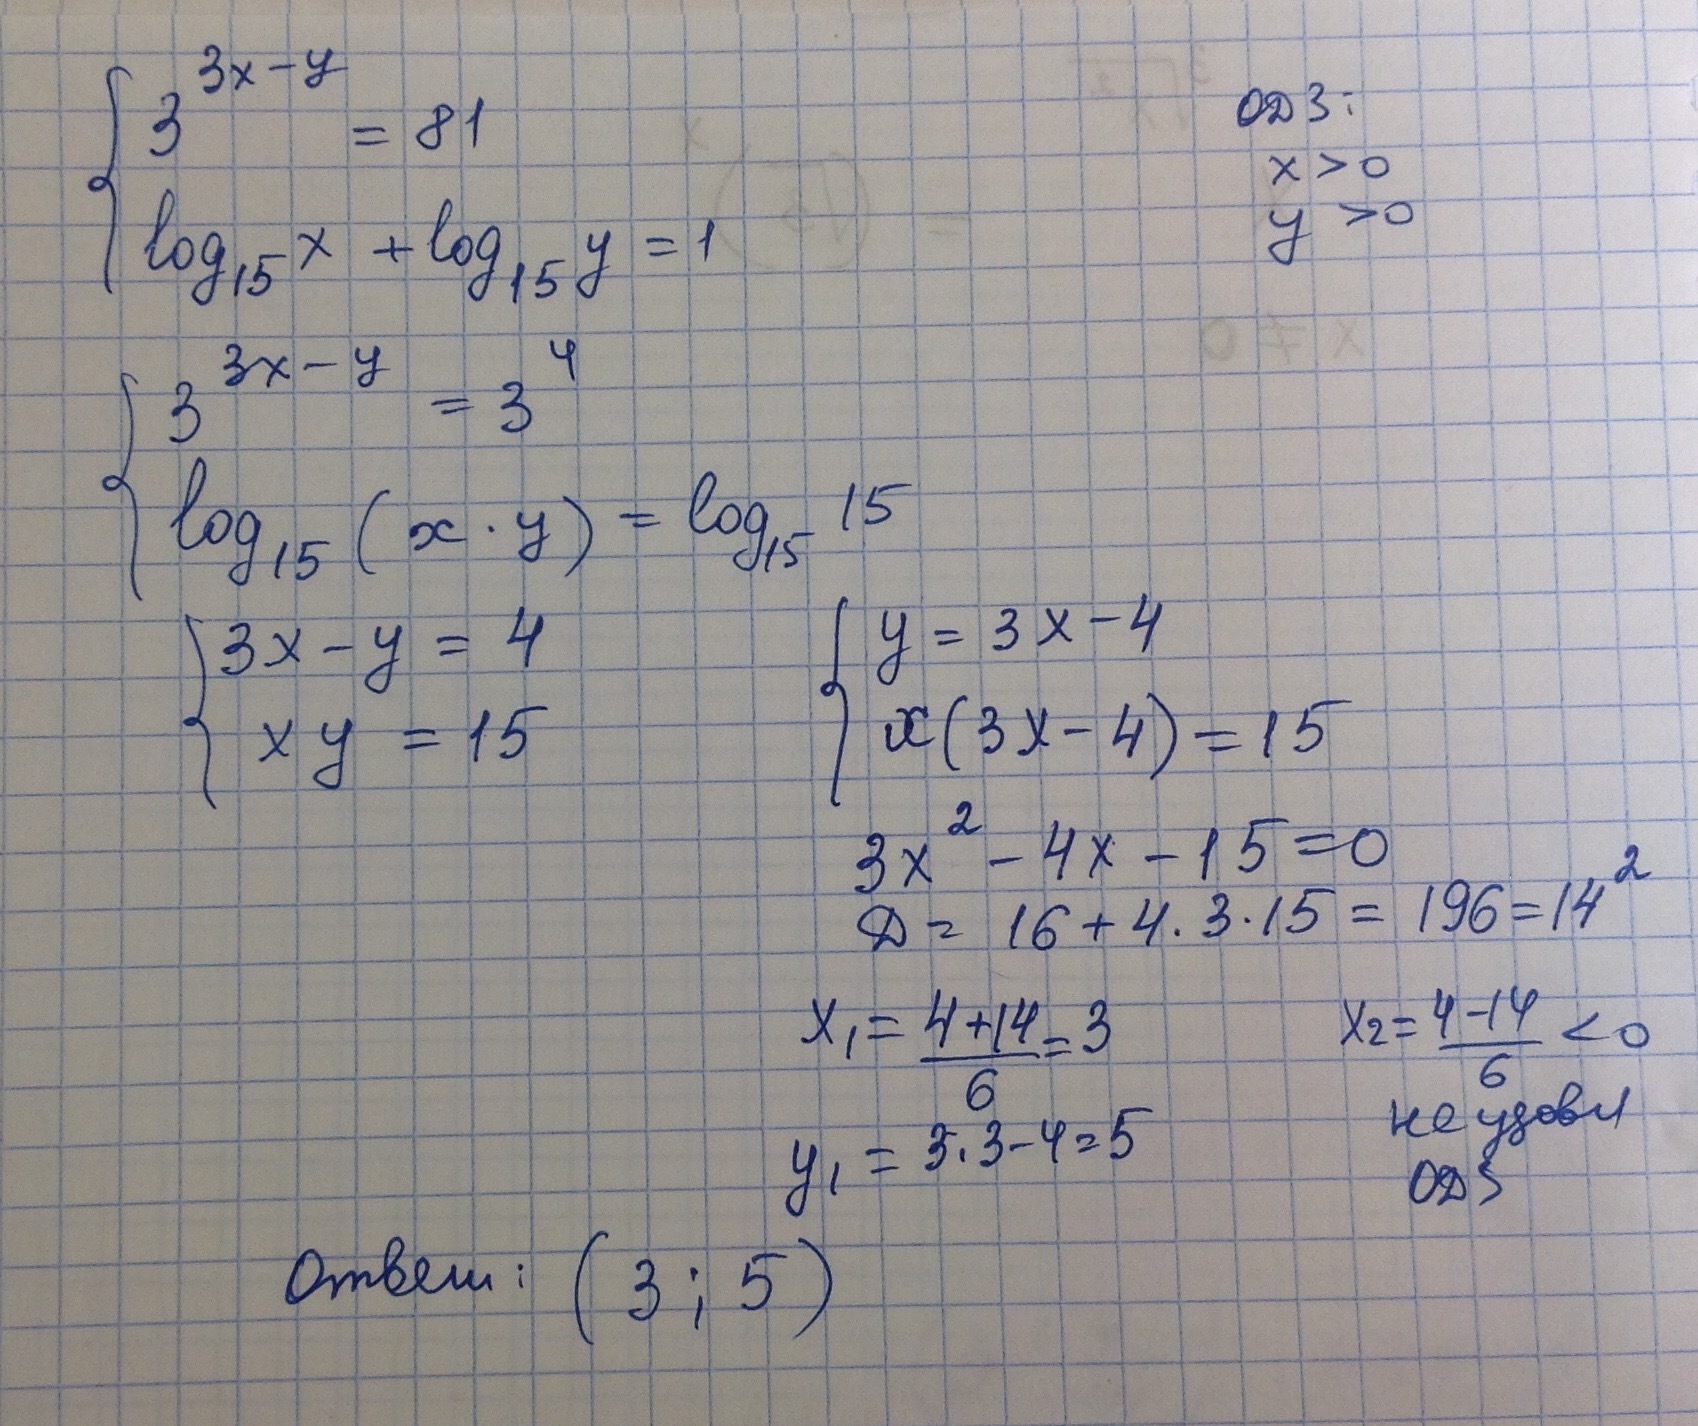 3^{3x-y} = 81
ОДЗ:
x > 0
y > 0
log_{15} x + log_{15} y = 1
3^{3x-y} = 3^4
log_{15} (x · y) = log_{15} 15
3x - y = 4
xy = 15
y = 3x - 4
x(3x - 4) = 15
3x^2 - 4x - 15 = 0
D = 16 + 4 · 3 · 15 = 196 = 14^2
x_1 = \frac{4+14}{6} = 3
x_2 = \frac{4-14}{6} < 0
не удовл
ОДЗ
y_1 = 3 · 3 - 4 = 5
Ответ: (3; 5)